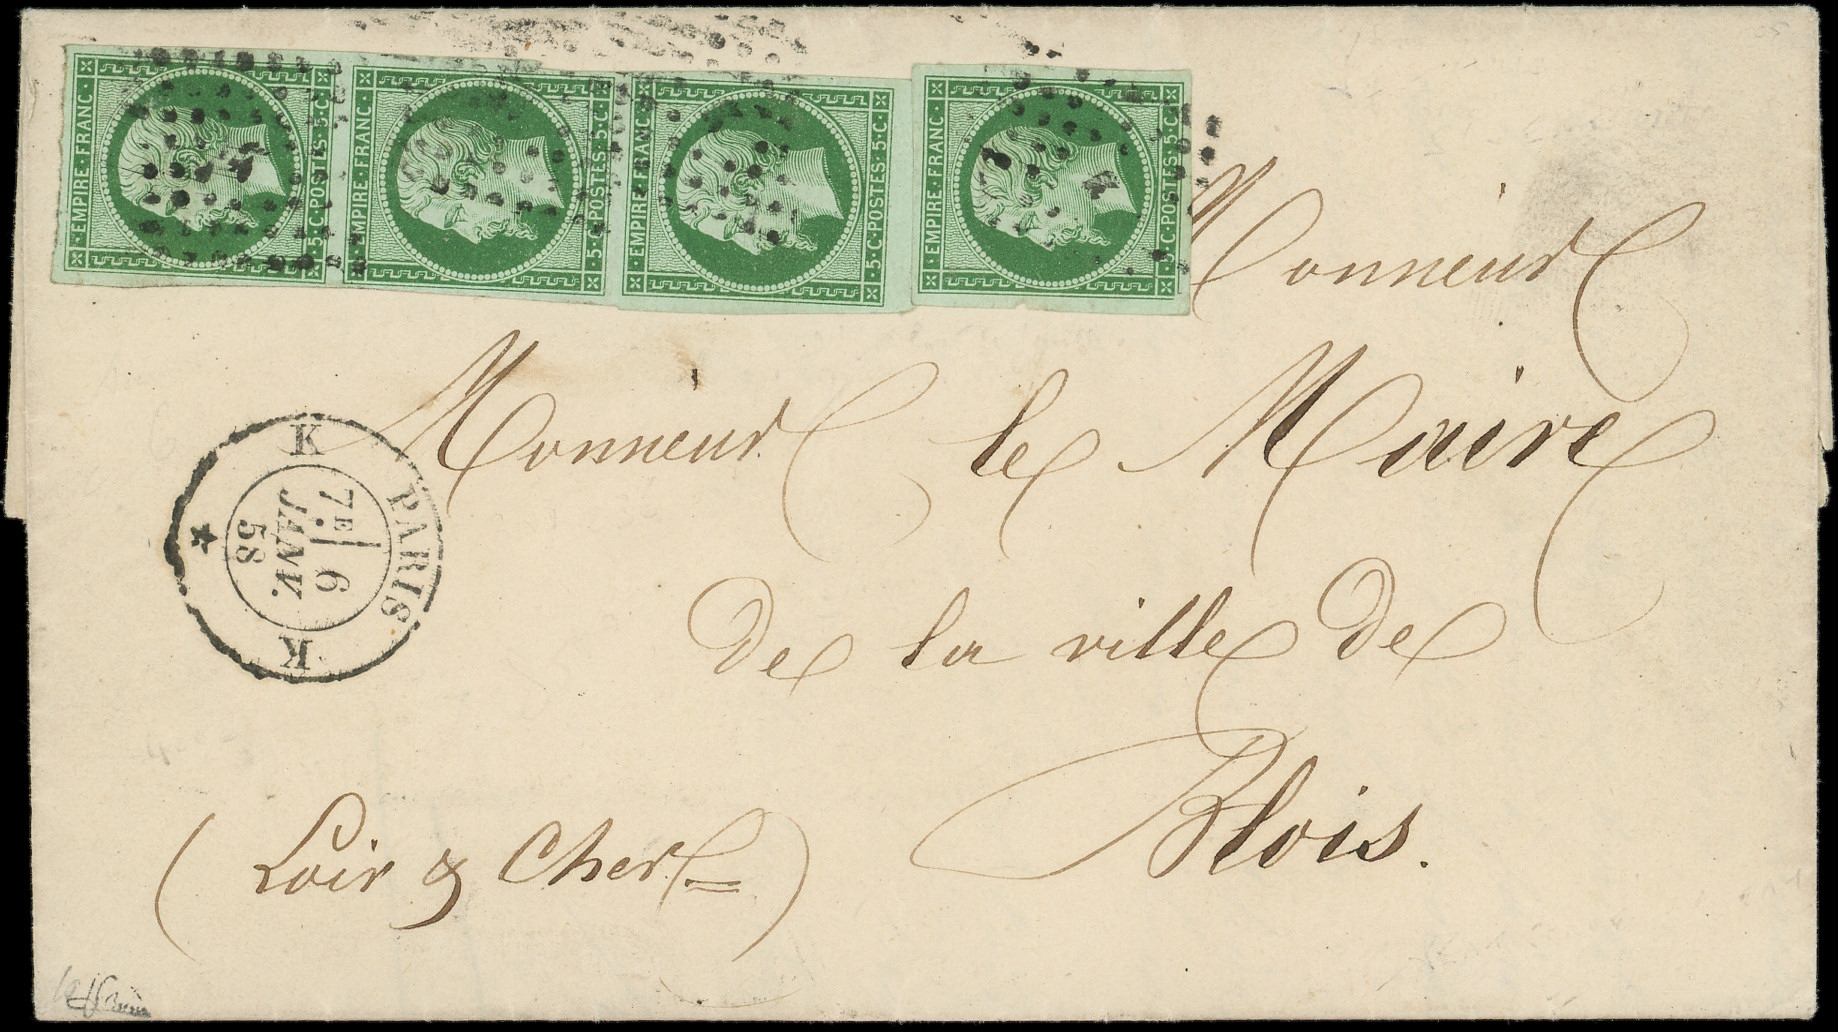 EMPIRE·FRANC· 5·C·POSTES·5·C·
EMPIRE·FRANC· 5·C·POSTES·5·C·
EMPIRE·FRANC· 5·C·POSTES·5·C·
EMPIRE·FRANC· 5·C·POSTES·5·C·
Monsieur
Monsieur le Maire
de la ville de
Blois.
(Loir & Cher)
K PARIS K
7E 6
JANV.
58